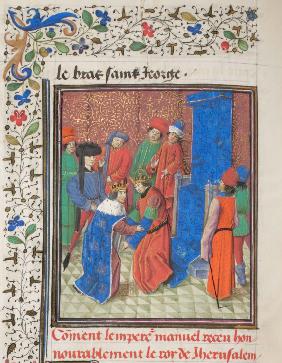 le bras saint george .
Cōment lempere᷑ manuel receu hon
nourablement le roy de Iherusalem